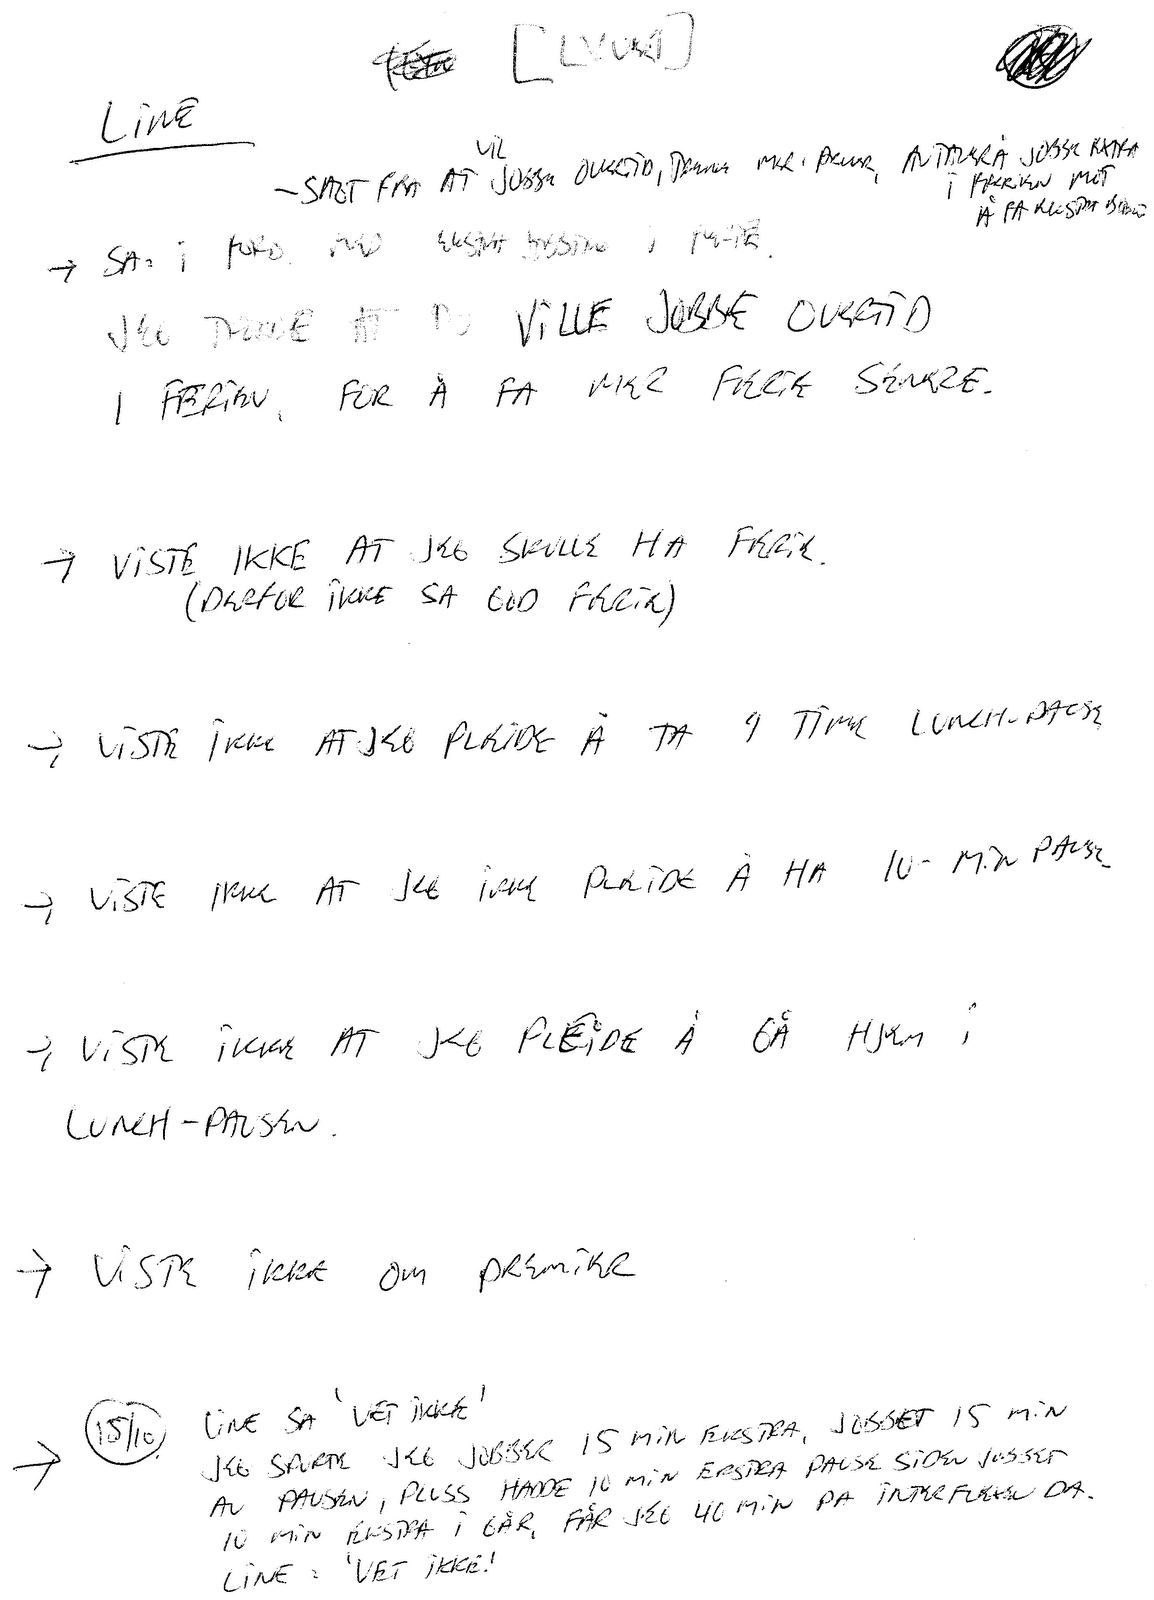 [LYVERT]
LINE
VIL
- SAGT FRA AT JOBBE OVERTID, MER I PAUSER, AVTALER Å JOBBE EKSTRA
I FERIEN MOT
Å FA EKSTRA
→ SA: I FORB. MED EKSTRA JOBBING I FERIE.
JEG TRODDE AT DU VILLE JOBBE OVERTID
I FERIEN, FOR Å FA MER FERIE SENERE.
→ VISTE IKKE AT JEG SKULLE HA FERIE.
(DERFOR IKKE SA GOD FERIE)
→ VISTE IKKE AT JEG PLEIDE Å TA 1 TIME LUNCH-PAUSE
→ VISTE IKKE AT JEG IKKE PLEIDE Å HA 10-MIN PAUSE
→ VISTE IKKE AT JEG PLEIDE Å GÅ HJEM I
LUNCH-PAUSEN.
→ VISTE IKKE OM PREMIER
→ 15/10. LINE SA 'VET IKKE'
JEG SPURTE JEG JOBBER 15 MIN EKSTRA, JOBBET 15 MIN
AV PAUSEN, PLUSS HADDE 10 MIN EKSTRA PAUSE SIDEN JOBBET
10 MIN EKSTRA I GÅR, FÅR JEG 40 MIN PA INTERFLEXEN DA.
LINE: 'VET IKKE!'